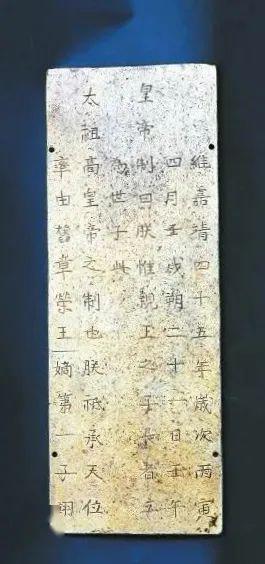 維嘉靖四十五年歲次丙寅
四月壬戌朔二十一日壬午
皇帝制曰朕惟親王之子長者立
為世子此
太祖高皇帝之制也朕祗承天位
率由舊章榮王嫡第一子翊